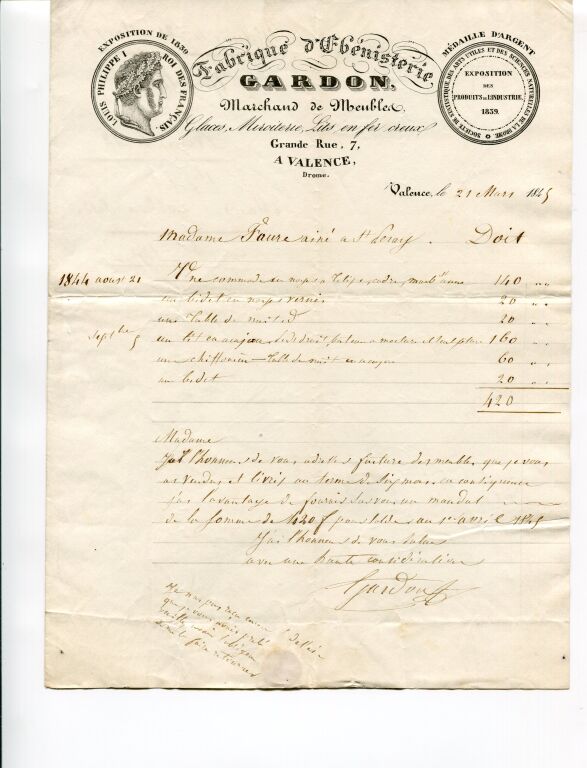 EXPOSITION DE 1839
LOUIS PHILIPPE I ROI DES FRANÇAIS
Fabrique d'Ébénisterie
GARDON,
Marchand de Meubles,
Glaces, Miroiterie, Lits en fer creux
Grande Rue, 7,
A VALENCE,
Drome.
MÉDAILLE D'ARGENT
SOCIÉTÉ DE STATISTIQUE DES ARTS UTILES ET DES SCIENCES NATURELLES DE LA DROME
EXPOSITION
DES
PRODUITS DE L'INDUSTRIE.
1839.
Valence, le 21 Mars 1845
Madame Faure ainé a St Peray. Doit
1844 aout 21 Une commode en noyer 140 " "
un bidet en noyer verni 20 " "
une table de nuit d 20 " "
Septbre 5 un lit en acajou 160 " "
un chiffonier table de nuit en acajou 60 " "
un bidet 20 " "
420
Madame
J'ai l'honneur de vous adresser facture des meubles que je vous
ai vendus et livrés au terme de six mois en conséquence
j'ai l'avantage de fournir sur vous un mandat
de la somme de 420 f pour solde au 1er avril 1845
J'ai l'honneur de vous saluer
avec une haute considération
Gardon
que je vous